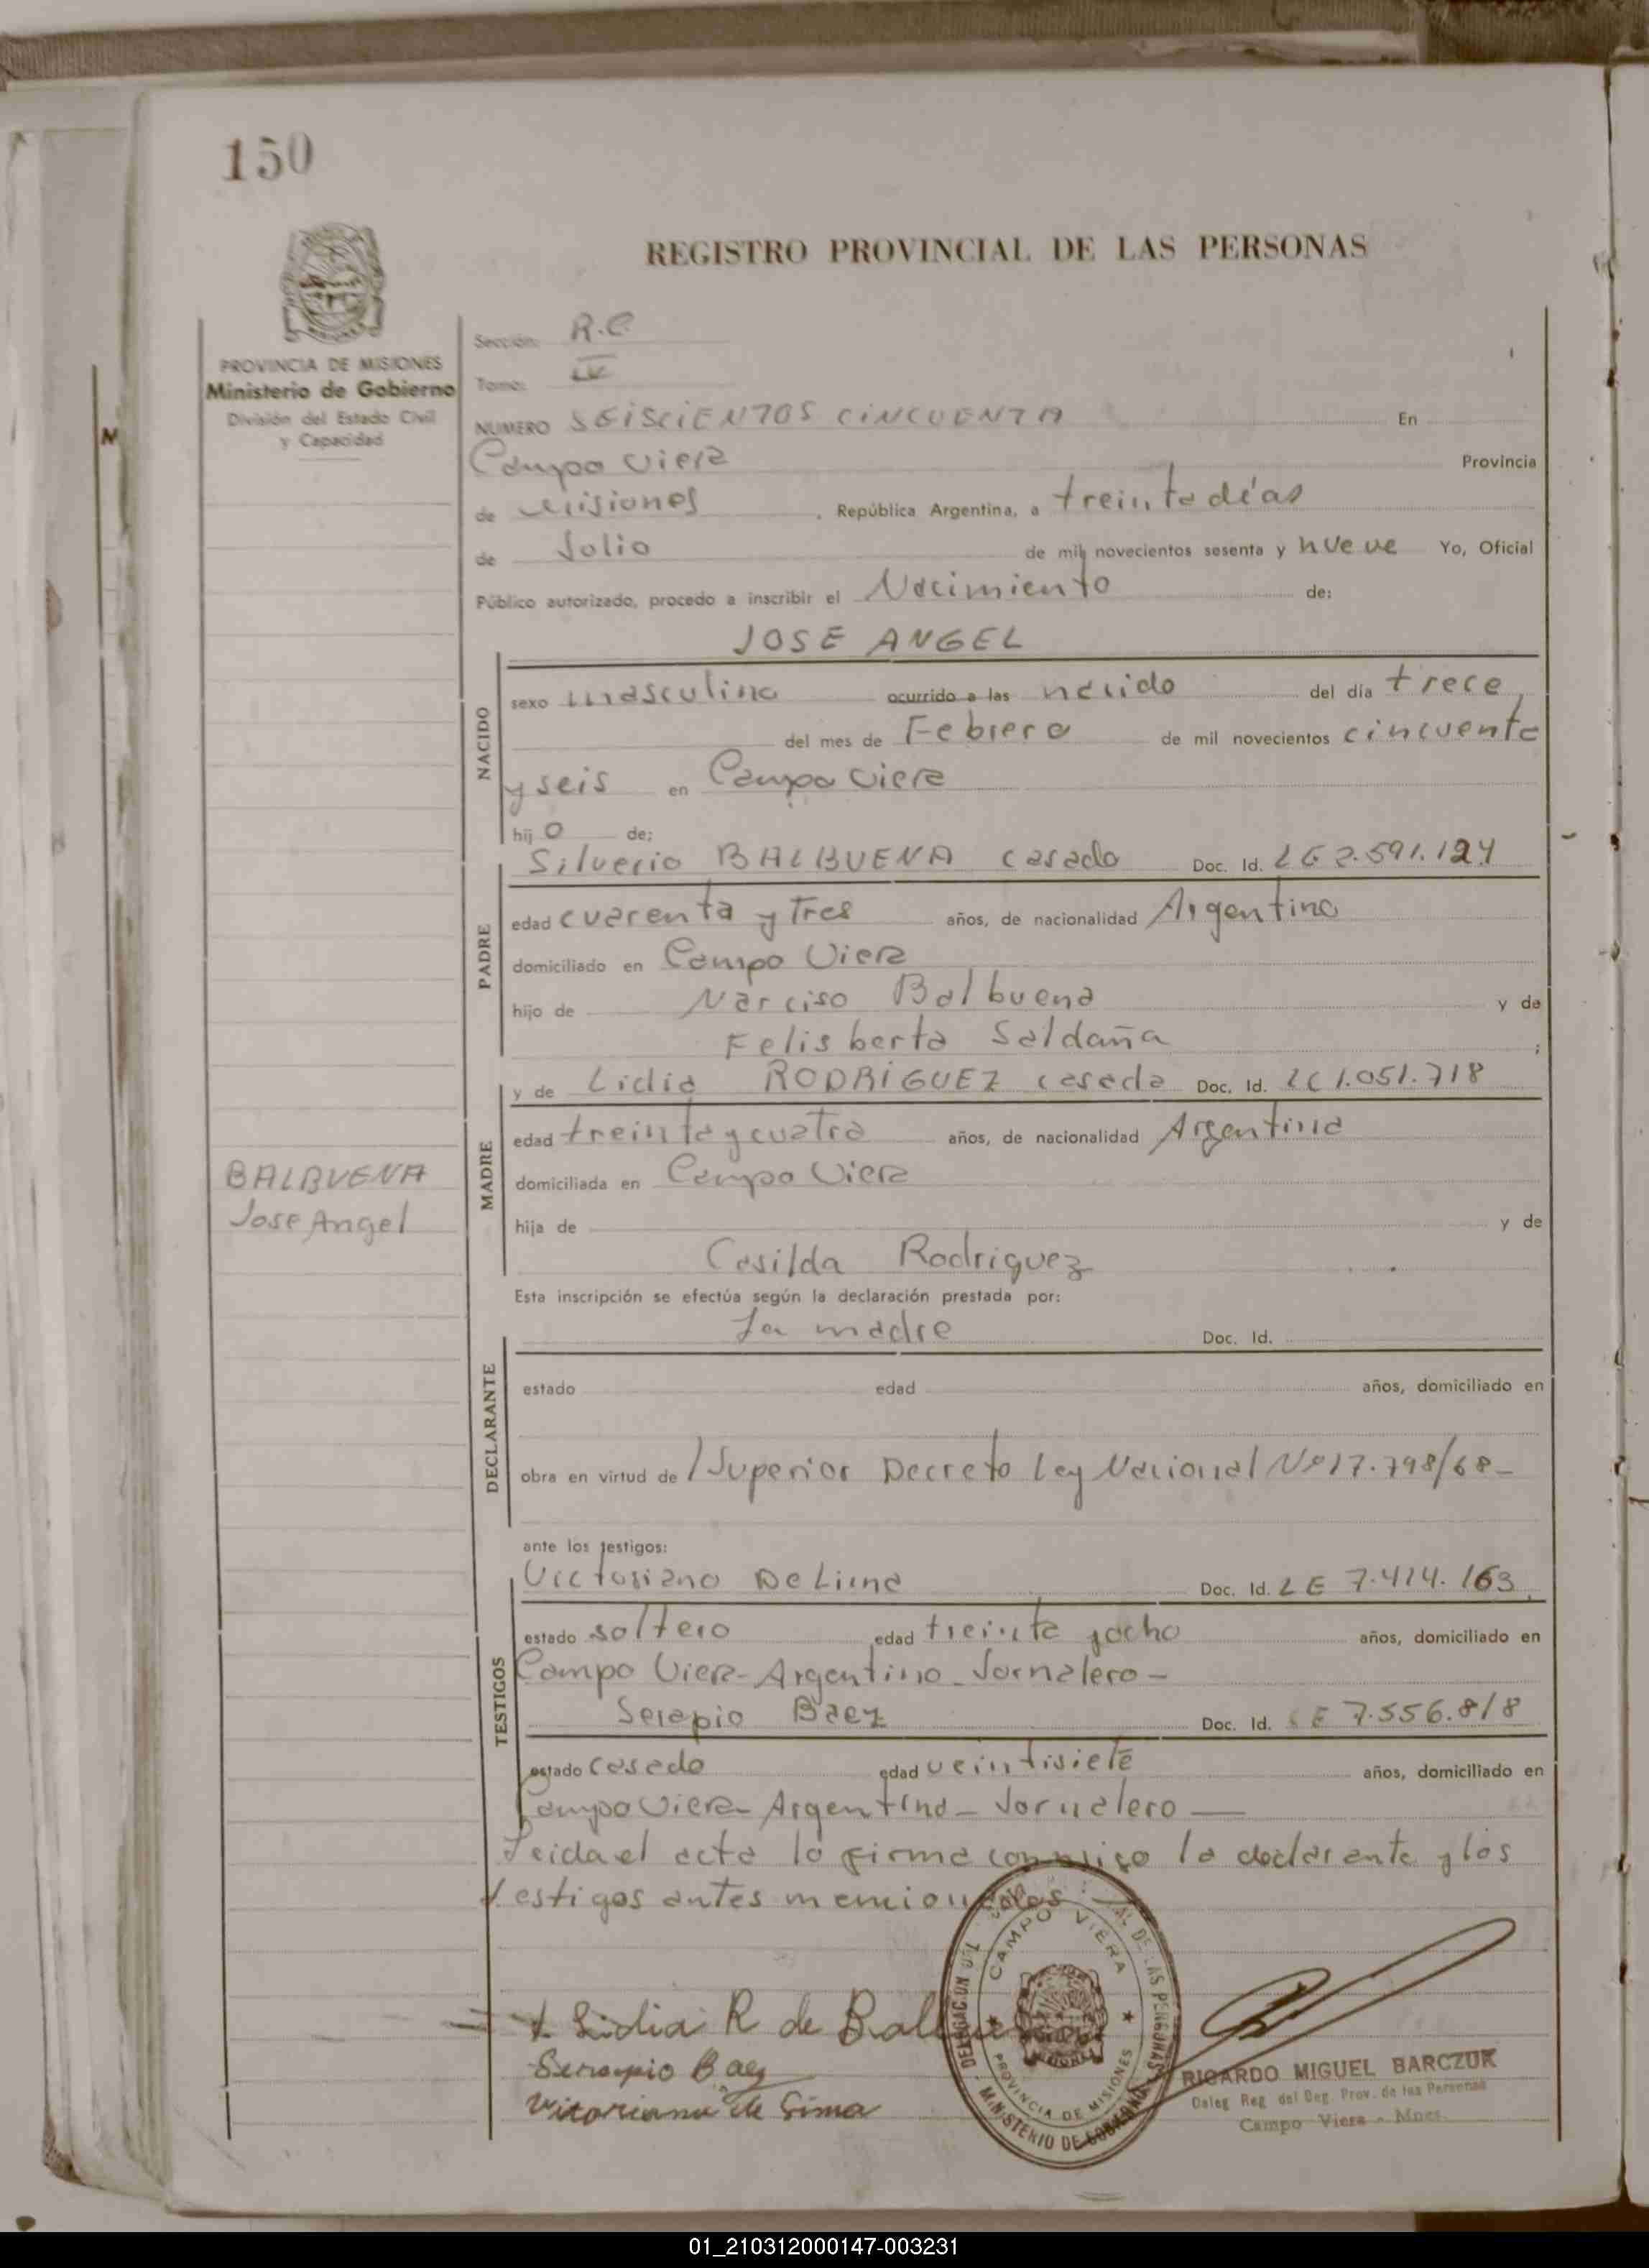 150
REGISTRO PROVINCIAL DE LAS PERSONAS
PROVINCIA DE MISIONES
Ministerio de Gobierno
División del Estado Civil
y Capacidad
M
Sección: R.C
Tomo: IV
NUMERO SEISCIENTOS CINCUENTA En
Campo Viera Provincia
de Misiones , República Argentina, a treinta días
de Julio de mil novecientos sesenta y nueve Yo, Oficial
Público autorizado, procedo a inscribir el Nacimiento de:
JOSE ANGEL
NACIDO
sexo masculino ocurrido a las nacido del día trece
del mes de Febrero de mil novecientos cincuenta
y seis en Campo Viera
hij o de:
PADRE
Silverio BALBUENA casado Doc. Id. LE 2.591.124
edad cuarenta y Tres años, de nacionalidad Argentino
domiciliado en Campo Viera
hijo de Narciso Balbuena y de
Felisberta Saldaña ;
MADRE
y de Lidia RODRIGUEZ casada Doc. Id. LC 1.051.718
edad treinta y cuatro años, de nacionalidad Argentina
domiciliada en Campo Viera
hija de y de
Casilda Rodriguez
BALBUENA
Jose Angel
Esta inscripción se efectúa según la declaración prestada por:
DECLARANTE
La madre Doc. Id.
estado edad años, domiciliado en
obra en virtud de /Superior Decreto Ley Nacional Nº 17.798/68-
ante los testigos:
TESTIGOS
Victoriano De Lima Doc. Id. LE 7.414.163
estado soltero edad treinta y ocho años, domiciliado en
Campo Viera- Argentino- Jornalero-
Serapio Baez Doc. Id. LE 7.556.818
estado casado edad veintisiete años, domiciliado en
Campo Viera- Argentino- Jornalero-
Leida el acta la firma conmigo la declarante y los
testigos antes mencionados
Lidia R de Balbuena
Serapio Baez
Vitoriano de Lima
CAMPO VIERA
PROVINCIA DE MISIONES
DELEGACION DEL DE LAS PERSONAS
MINISTERIO DE GOBIERNO
RICARDO MIGUEL BARCZUK
Deleg Reg del Reg. Prov. de las Personas
Campo Viera - Mnes.
01_210312000147-003231